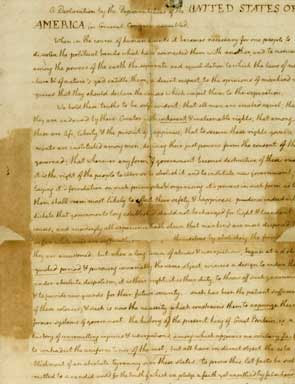 A Declaration by the Representatives of the UNITED STATES OF
AMERICA in General Congress assembled.
When in the course of human events it becomes necessary for one people to
dissolve the political bands which have connected them with another, and to assume
among the powers of the earth the separate and equal station to which the laws of nature
& of nature's god entitle them, a decent respect to the opinions of mankind re-
quires that they should declare the causes which impel them to the separation.
We hold these truths to be self evident: that all men are created equal; that
they are endowed by their Creator with inherent & inalienable rights; that among
these are life, liberty & the pursuit of happiness; that to secure these rights, govern-
ments are instituted among men, deriving their just powers from the consent of the
governed; that whenever any form of government becomes destructive of these ends,
it is the right of the people to alter or to abolish it, and to institute new government,
laying it's foundation on such principles & organizing it's powers in such form as to
them shall seem most likely to effect their safety & happiness. prudence indeed will
dictate that governments long established should not be changed for light & transient
causes. and accordingly all experience hath shewn that mankind are more disposed
themselves by abolishing the forms to which
they are accustomed. but when a long train of abuses & usurpations, begun at a distin-
guished period & pursuing invariably the same object, evinces a design to reduce them
under absolute despotism, it is their right, it is their duty, to throw off such government
& to provide new guards for their future security. such has been the patient sufferance
of these colonies; & such is now the necessity which constrains them to expunge their
former systems of government. the history of the present king of Great Britain, is a
history of unremitting injuries & usurpations, among which appears no solitary fact
to contradict the uniform tenor of the rest, but all have in direct object the establ-
ishment of an absolute tyranny over these states. to prove this let facts be sub-
mitted to a candid world, for the truth of which we pledge a faith yet unsullied by falsehood